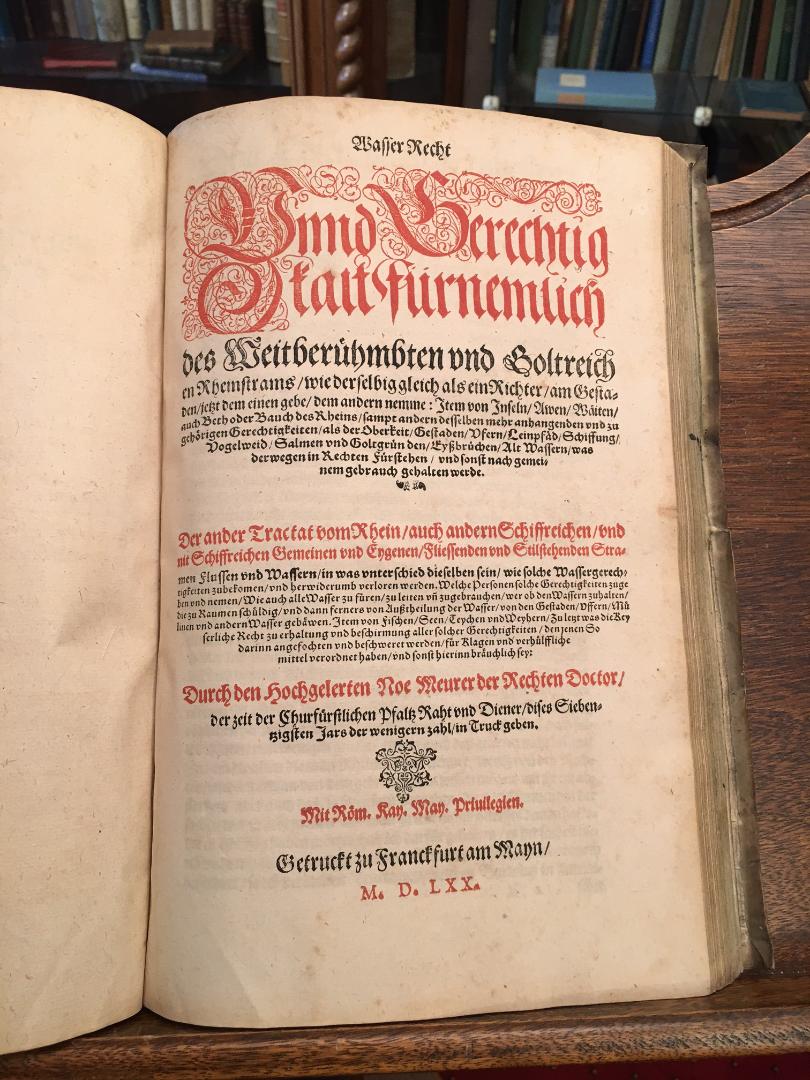 Wasser Recht
Vnnd Gerechtig
kait Fürnemlich
des Weitberühmbten vnd Goltreich
en Rheinstrams / wie derselbig gleich als ein Richter / am Gesta-
den / jetzt dem einen gebe / dem andern nemme : Item von Inseln / Awen / Wäiten /
auch Beth oder Bauch des Rheins / sampt andern desselben mehr anhangenden vnd zu
gehörigen Gerechtigkeiten / als der Oberkeit / Gestaden / Vfern / Leinpfäd / Schiffung /
Vogelweid / Salmen vnd Goltgrün den / Eyßbrüchen / Alt Wassern / was
derwegen in Rechten Fürstehen / vnd sonst nach gemei-
nem gebrauch gehalten werde.
Der ander Tractat vom Rhein / auch andern Schiffreichen / vnd
nit Schiffreichen Gemeinen vnd Eygenen / Fliessenden vnd Stilstehenden Stra-
men Flussen vnd Wassern / in was vnterschied dieselben sein / wie solche Wassergerech-
tigkeiten zubekomen / vnd herwiderumb verloren werden. Welche Personen solche Gerechtigkeiten zuge
ben vnd nemen / Wie auch alle Wasser zu füren / zu leiten vñ zugebrauchen / wer ob den Wassern zuhalten /
die zu Raumen schüldig / vnd dann ferners von Außtheilung der Wasser / von den Gestaden / Vffern / Mü
linen vnd andern Wasser gebäwen. Item von Fischen / Seen / Teychen vnd Weyhern / Zu letzt was die Key
serliche Recht zu erhaltung vnd beschirmung aller solcher Gerechtigkeiten / den jenen So
darinn angefochten vnd beschweret werden / für Klagen vnd verhülffliche
mittel verordnet haben / vnd sonst hierinn bräuchlich sey:
Durch den Hochgelerten Noe Meurer der Rechten Doctor /
der zeit der Churfürstlichen Pfaltz Raht vnd Diener / dises Sieben-
tzigsten Jars der wenigern zahl / in Truck geben.
Mit Röm. Kay. May. Priuilegien.
Getruckt zu Franckfurt am Mayn /
M. D. LXX.